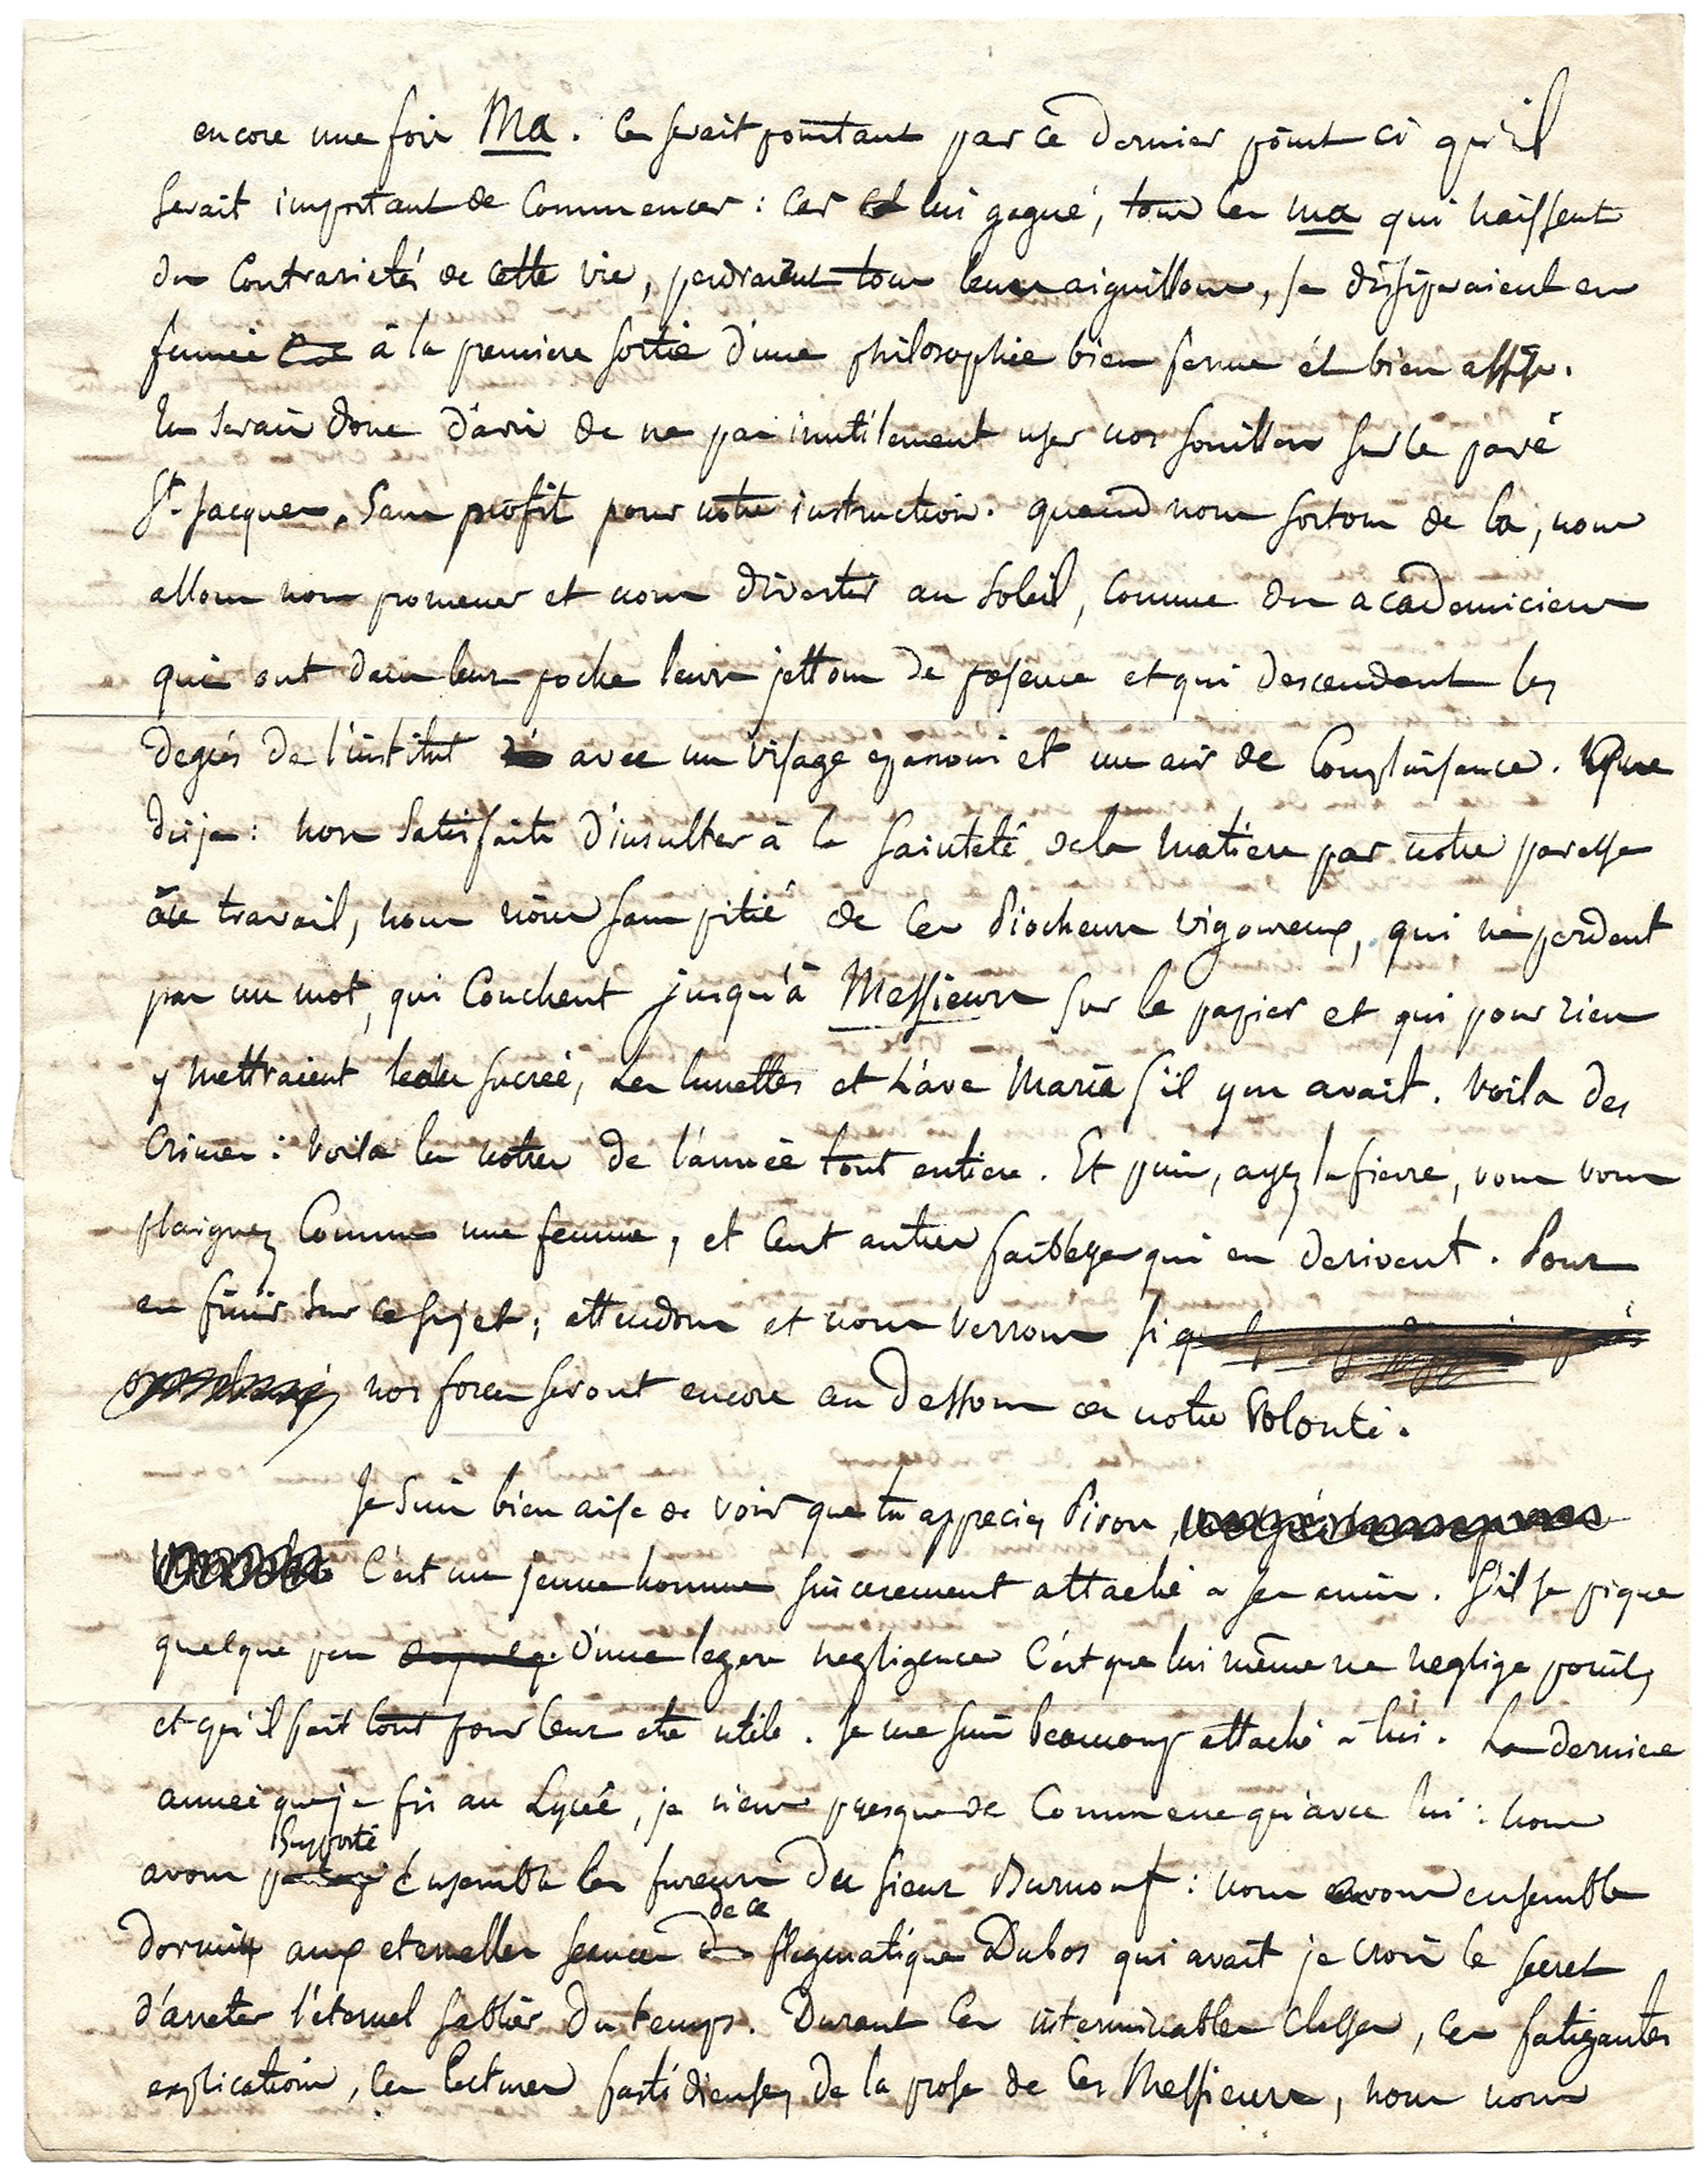 encore une fois Ma. Ce serait pourtant par ce dernier point ci qu'il
serait important de commencer: car lui gagné, tous les ma qui naissent
des contrarietés de cette vie, perdraient tous leurs aiguillons, se dissiperaient en
fumée à la premiere sortie d'une philosophie bien ferme et bien assise.
Tu serais donc d'avis de ne pas inutilement user nos souilliers sur le pavé
St. Jacques, sans profit pour notre instruction. quand nous sortons de la, nous
allons nous promener et nous divertir au soleil, comme des academiciens
qui ont dans leur poche leurs jettons de présence et qui descendent les
degrés de l'institut avec un visage epanoui et un air de complaisance. Que
dis je: non satisfaits d'insulter à la sainteté de la matiere par notre paresse
au travail, nous rions sans pitié de ces Piocheurs vigoureux, qui ne perdent
pas un mot, qui couchent jusqu'à Messieurs sur le papier et qui pour rien
y mettraient l'eau sucrée, les lunettes et l'ave Maria s'il y en avait. Voila des
crimes: voila les notres de l'année tout entiere. Et puis, ayez la fievre, vous vous
plaignez comme une femme, et cent autres faiblesses qui en derivent. Pour
en finir sur ce sujet; attendons et nous verrons si
nos forces seront encore au dessous de notre volonté.
Je suis bien aise de voir que tu apprecies Piron
C'est un jeune homme sincerement attaché a ses amis. S'il se pique
quelque peu d'une legere negligence c'est que lui même ne neglige point,
et qu'il fait tout pour leur etre utile. Je me suis beaucoup attaché a lui. La derniere
année que je fis au Lycée, je n'eus presque de commerce qu'avec lui: nous
avons supporté ensemble les fureurs du sieur Burnouf: nous avons ensemble
dormi aux eternelles seances de ce flegmatique Dubos qui avait je crois le secret
d'arreter l'éternel sablier du temps. Durant ces interminables classes, ces fatigantes
explications, ces lectures fastidieuses de la prose de ces Messieurs, nous nous